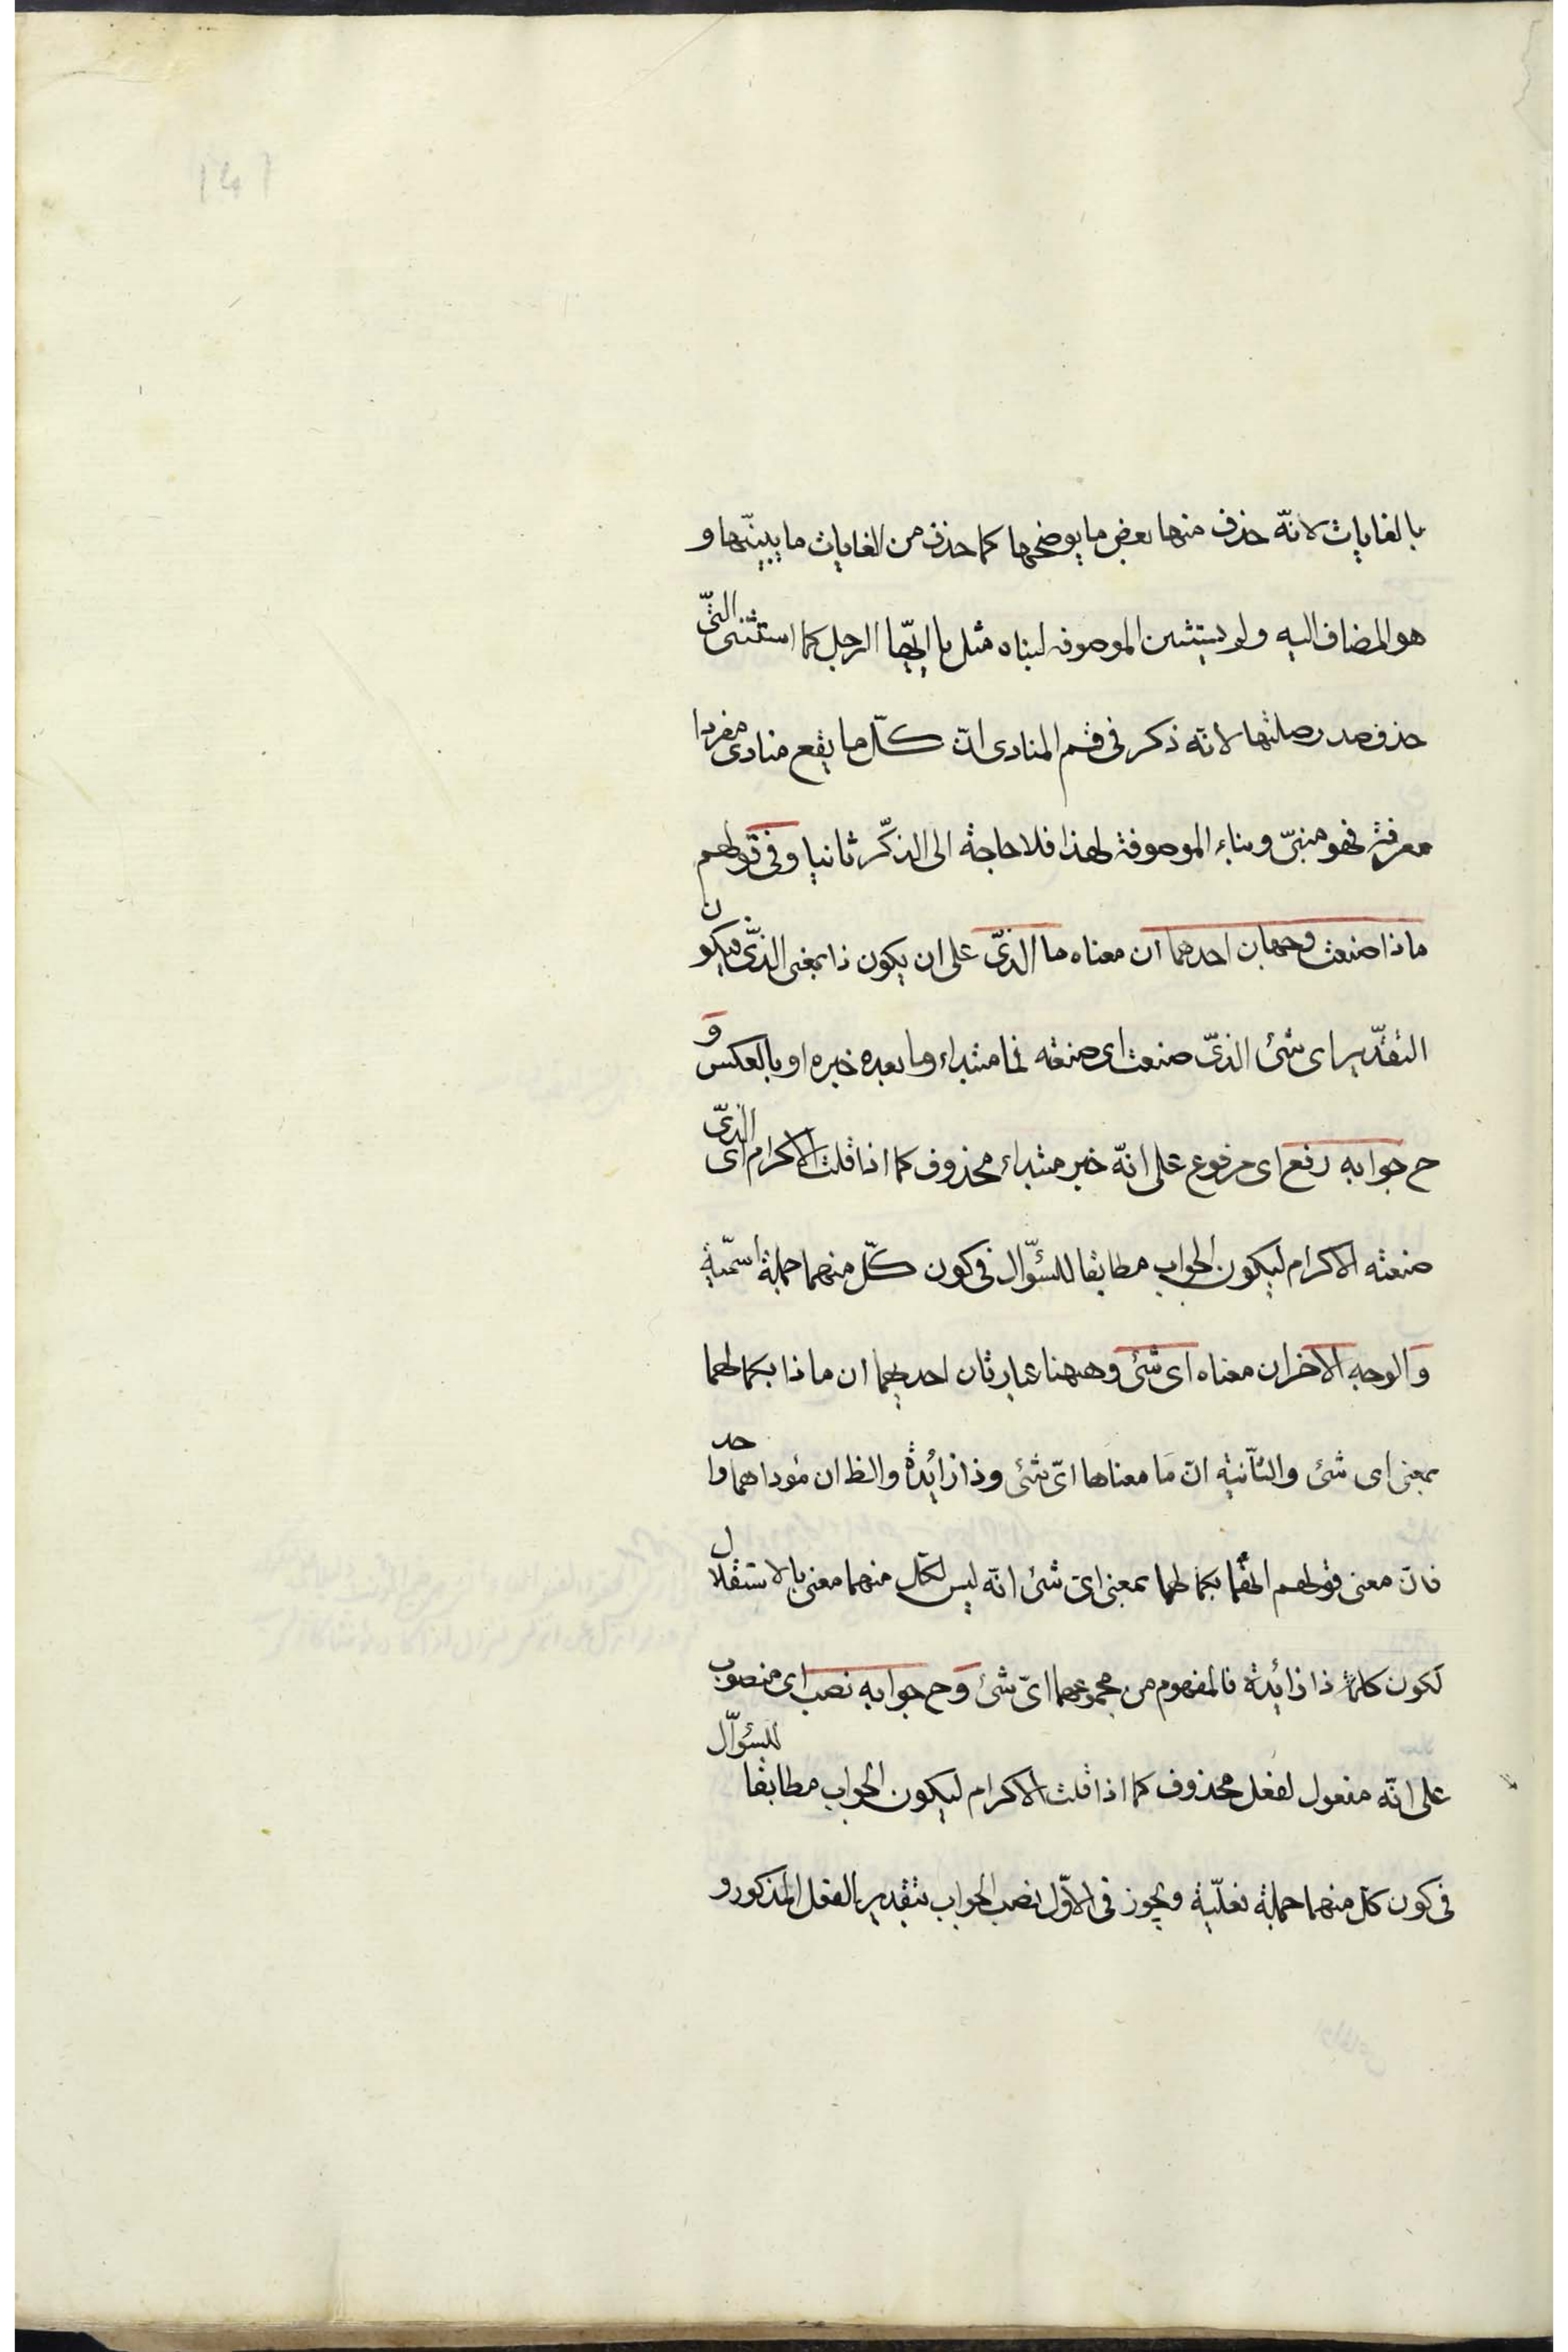 بالغايات لانّه حذف منها بعض ما يوضحها كما حذف من الغايات ما يبيّنها و
هو المضاف اليه ولم يستثن الموصوفه لبناه مثل يا ايّها الرجل كما استثنى التّى
حذف صدر صلتها لانّه ذكر فى قسم المنادى انّ كلّ ما يقع منادى مفردا
معرفة فهو مبنىّ وبناء الموصوفة لهذا فلا حاجة الى الذكّر ثانيا وفى قولهم
ماذا صنعت وجهان احدهما ان معناه ما الذىّ على ان يكون ذا بمعنى الذىّ فيكون
التقدّير اى شئ الذىّ صنعت اى صنعته فما مبتداء وما بعده خبره او بالعكس و
ح جوابه رفع اى مرفوع على انّه خبر مبتداء محذوف كما اذا قلت الاكرام اى الذىّ
صنعته الاكرام ليكون الجواب مطابقا للسئوّال فى كون كلّ منهما جملة اسمّية
والوجه الاخر ان معناه اى شئ وههنا عبارتان احديهما ان ماذا بكمالهما
بمعنى اى شئ والثّانية انّ مَا معناها اىّ شئ وذا زائدة والظ ان مؤداهما واحد
فانّ معنى قولهم انّهما بكمالهما بمعنى اىّ شئ انّه ليس لكلّ منهما معنى بالاستقلال
لكون كلمة ذا زائدة فالمفهوم من مجموعهما اىّ شئ وح جوابه نصب اى منصوب
على انّه مفعول لفعل محذوف كما اذا قلت الاكرام ليكون الجواب مطابقا للسئوّال
فى كون كلّ منهما جملة فعلّية ويجوز فى الاوّل نصب الجواب بتقدير الفعل المذكور و